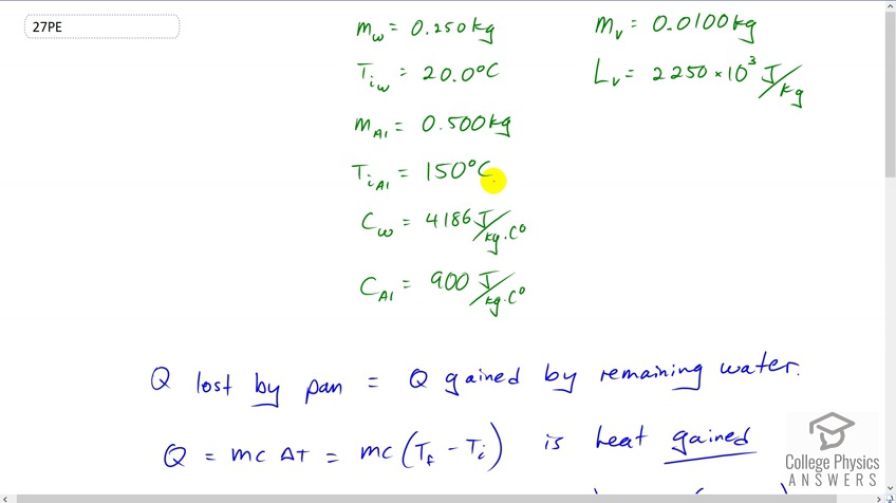 27PE
m_w = 0.250kg
T_iw = 20.0°C
m_Al = 0.500kg
T_iAl = 150°C
C_w = 4186 J/kg·C°
C_Al = 900 J/kg·C°
m_v = 0.0100kg
L_v = 2250×10³ J/kg
Q lost by pan = Q gained by remaining water.
Q = mcΔT = mc(T_f - T_i) is heat gained
College Physics
ANSWERS